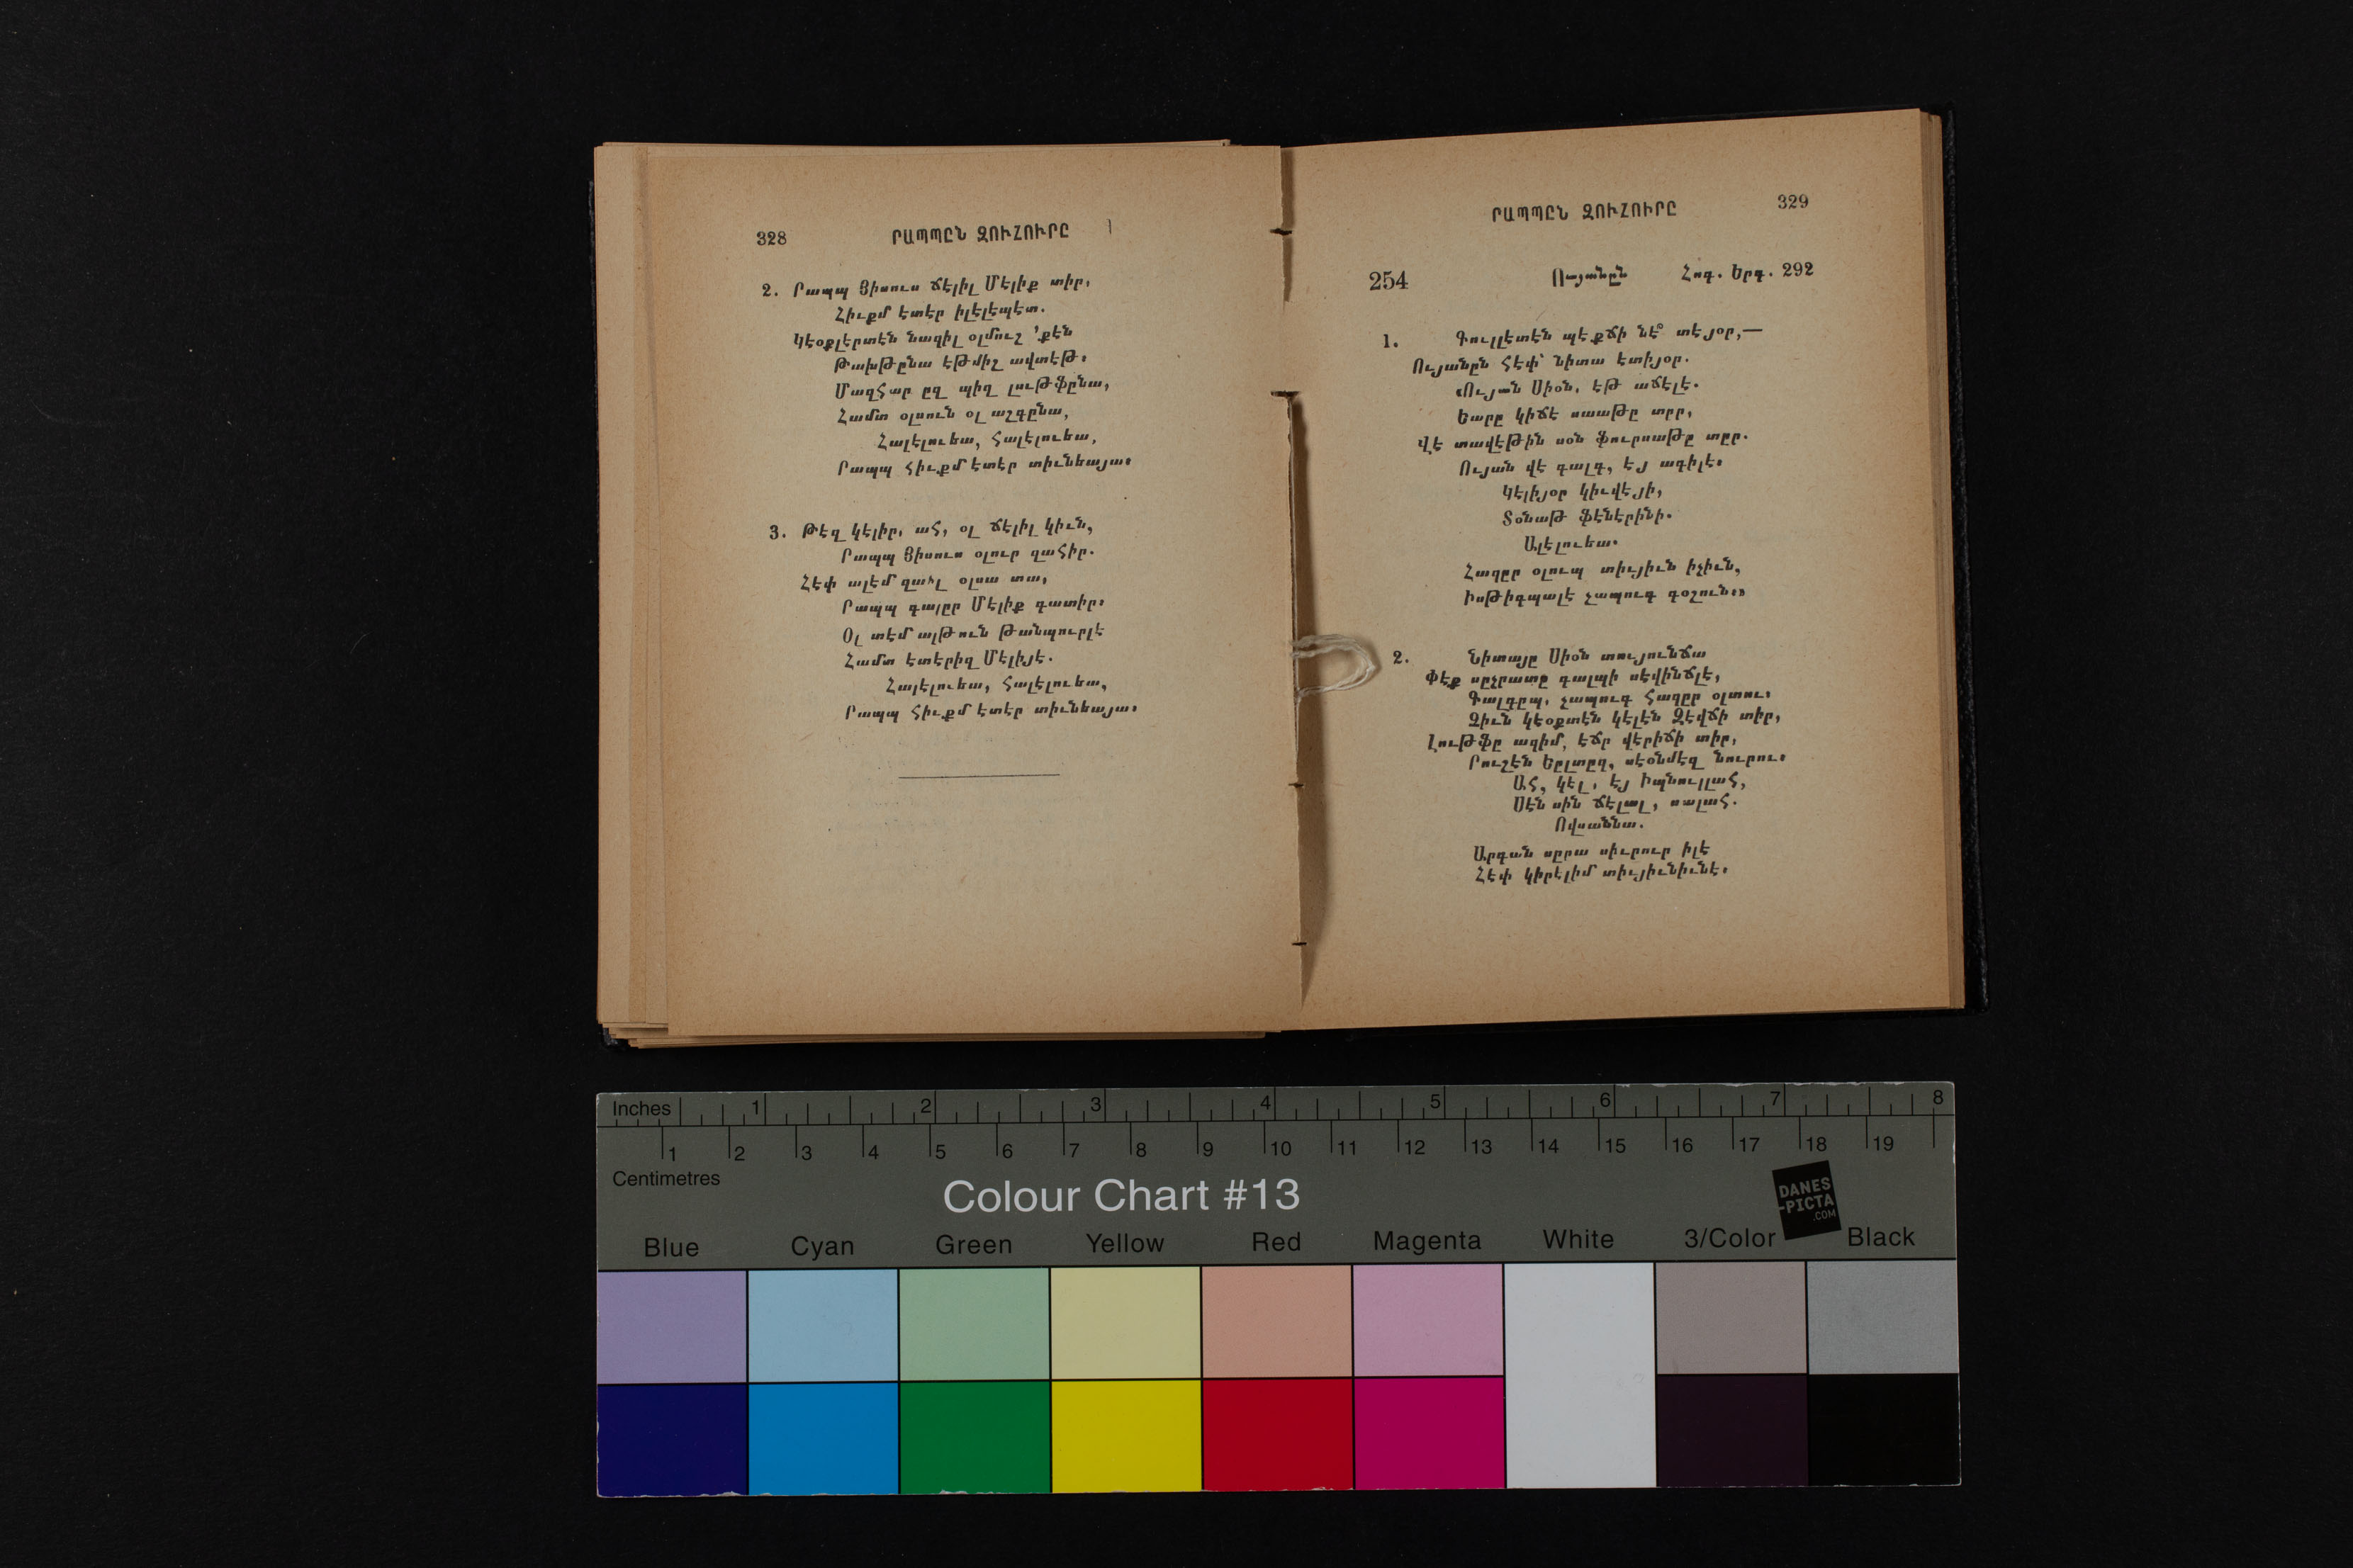 328 ՐԱՊՊԸՆ ԶՈՒՀՈՒՐԸ
2. Րապպ Յիսուս ճէլիլ Մէլիք տիր,
Հիւքմ էտէր իլէլէպէտ.
Կէօքլէրտէն նազիլ օլմուշ ՚քէն
Թախթընա էթմիշ ավտէթ։
Մազհար ըզ պիզ լութֆընա,
Համտ օլսուն օլ աշգընա,
Հալէլուեա, հալէլուեա,
Րապպ հիւքմ էտէր տիւնեայա։
3. Թէզ կէլիր, ահ, օլ ճէլիլ կիւն,
Րապպ Յիսուս օլուր զահիր.
Հէփ ալէմ զաիլ օլսա տա,
Րապպ գալըր Մէլիք գատիր։
Օլ տէմ ալթուն թանպուրլէ
Համտ էտէրիզ Մէլիյէ.
Հալէլուեա, հալէլուեա,
Րապպ հիւքմ էտէր տիւնեայա։
ՐԱՊՊԸՆ ԶՈՒՀՈՒՐԸ 329
254 Ույանըն Հոգ. Երգ. 292
1. Գուլլէտէն պէքճի նէ՞ տէյօր,—
Ույանըն հէփ՝ նիտա էտիյօր.
«Ույան Սիօն, էթ աճէլէ.
Եարը կիճէ սաաթը տըր,
Վէ տավէթին սօն ֆուրսաթը տըր.
Ույան վէ գալգ, էյ ագիլէ։
Կէլիյօր կիւվէյի,
Տօնաթ ֆէնէրինի.
Ալէլուեա.
Հազըր օլուպ տիւյիւն իչիւն,
Իսթիգպալէ չապուգ գօշուն։»
2. Նիտայը Սիօն տույունճա
Փէք սըչրատը գալպի սէվինճլէ,
Գալգըպ, չապուգ հազըր օլտու։
Զիւն կէօքտէն կէլէն Զէվճի տիր,
Լութֆը ազիմ, էճր վէրիճի տիր,
Րուշէն Եըլտըզ, սէօնմէզ նուրու։
Ահ, կէլ, էյ Իպնուլլահ,
Սէն սին ճէլալ, սալահ.
Ովսաննա.
Արգան սըրա սիւրուր իլէ
Հէփ կիրէլիմ տիւյիւնիւնէ։
Inches 1 2 3 4 5 6 7 8
1 2 3 4 5 6 7 8 9 10 11 12 13 14 15 16 17 18 19
Centimetres
Colour Chart #13
DANES
-PICTA
.COM
Blue Cyan Green Yellow Red Magenta White 3/Color Black